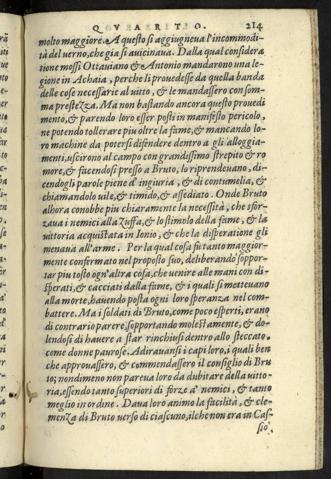 QVARTO. 214
molto maggiore. A questo si aggiugneua l'incommodi-
tà del uerno, che gia si auicinaua. Dalla qual considera
tione mossi Ottauiano & Antonio mandarono una le-
gione in Achaia, perche li prouedesse da quella banda
delle cose necessarie al uitto, & le mandassero con som-
ma prestezza. Ma non bastando ancora questo prouedi
mento, & parendo loro esser posti in manifesto pericolo,
ne potendo tollerare piu oltre la fame, & mancando lo-
ro machine da potersi difendere dentro a gli alloggia-
menti, uscirono al campo con grandissimo strepito & ro
more, & facendosi presso a Bruto, lo riprendeuano, di-
cendogli parole piene d'ingiuria, & di contumelia, &
chiamandolo uile, & timido, & assediato. Onde Bruto
alhora conobbe piu chiaramente la necessità, che sfor-
zaua i nemici alla zuffa, & lo stimolo della fame, & la
uittoria acquistata in Ionio, & che la disperatione gli
menaua all'arme. Per la qual cosa fu tanto maggior-
mente confermato nel proposito suo, deliberando soppor-
tar piu tosto ogn'altra cosa, che uenire alle mani con di-
sperati, & cacciati dalla fame, & i quali si metteuano
alla morte, hauendo posta ogni loro speranza nel com-
battere. Ma i soldati di Bruto, come poco esperti, erano
di contrario parere, sopportando molestamente, & do-
lendosi di hauere a star rinchiusi dentro allo steccato
come donne paurose. Adirauansi i capi loro, i quali ben
che approuassero, & commendassero il consiglio di Bru
to; nondimeno non pareua loro da dubitare della uitto-
ria, essendo tanto superiori di forze a' nemici, & tanto
meglio in ordine. Daua loro animo la facilità, & cle-
menza di Bruto uerso di ciascuno, ilche non era in Cas-
sio